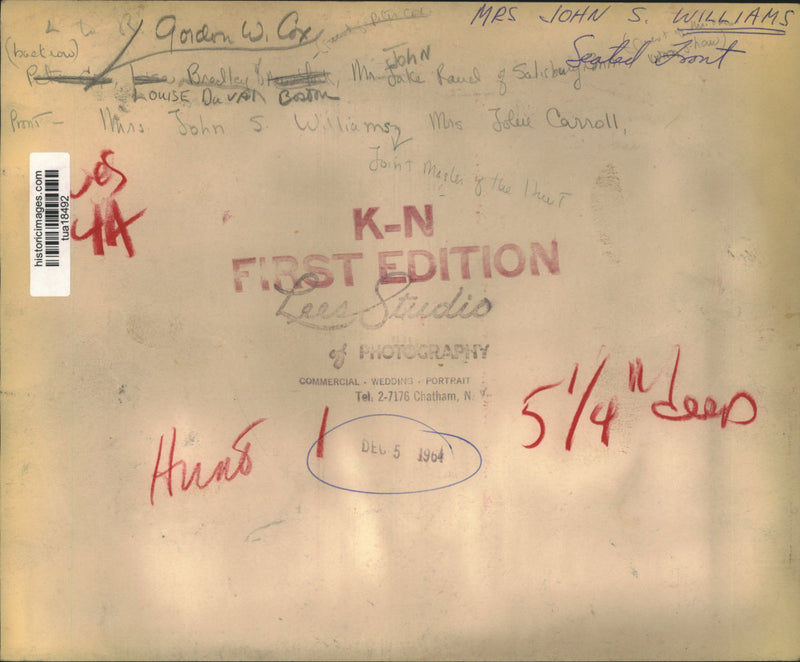 L to R
Gordon W. Cox
MRS JOHN S. WILLIAMS
(back row)
Seated Front
Bradley
JOHN
Mr Jake Rand of Salisbury
LOUISE DUVAL BOSTON
Front - Mrs John S. Williams, Mrs Carroll,
Joint Master of the Hunt
4A
historicimages.com
tua18492
K-N
FIRST EDITION
Lees Studio
of PHOTOGRAPHY
COMMERCIAL - WEDDING - PORTRAIT
Tel. 2-7176 Chatham, N.
Hunt 1
5 1/4" deep
DEC 5 1964